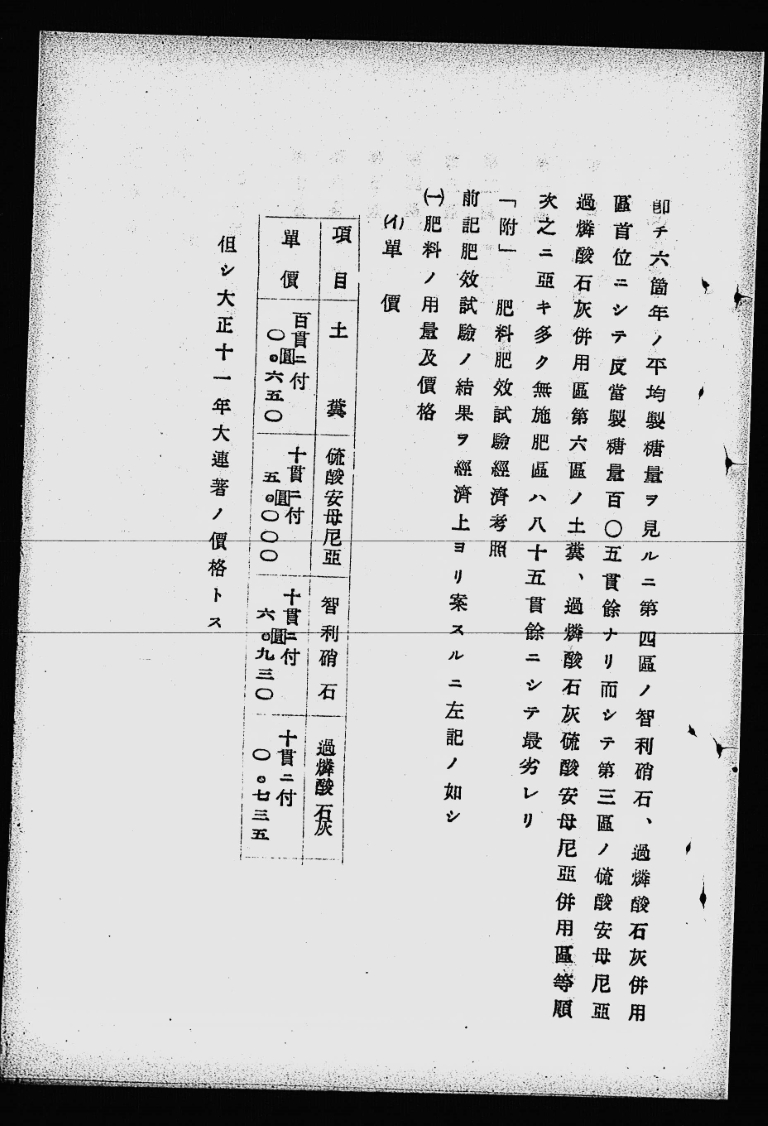 卽チ六箇年ノ平均製糖量ヲ見ルニ第四區ノ智利硝石、過燐酸石灰併用
區首位ニシテ反當製糖量百〇五貫餘ナリ而シテ第三區ノ硫酸安母尼亞
過燐酸石灰併用區第六區ノ土糞、過燐酸石灰硫酸安母尼亞併用區等順
次之ニ亞キ多ク無施肥區ハ八十五貫餘ニシテ最劣レリ
「附」 肥料肥效試驗經濟考照
前記肥效試驗ノ結果ヲ經濟上ヨリ案スルニ左記ノ如シ
㈠肥料ノ用量及價格
(イ)單價
項目 土糞 硫酸安母尼亞 智利硝石 過燐酸石灰
單價 百貫ニ付 〇。六五〇圓 十貫ニ付 五。〇〇〇圓 十貫ニ付 六。九三〇圓 十貫ニ付 〇。七三五
但シ大正十一年大連著ノ價格トス